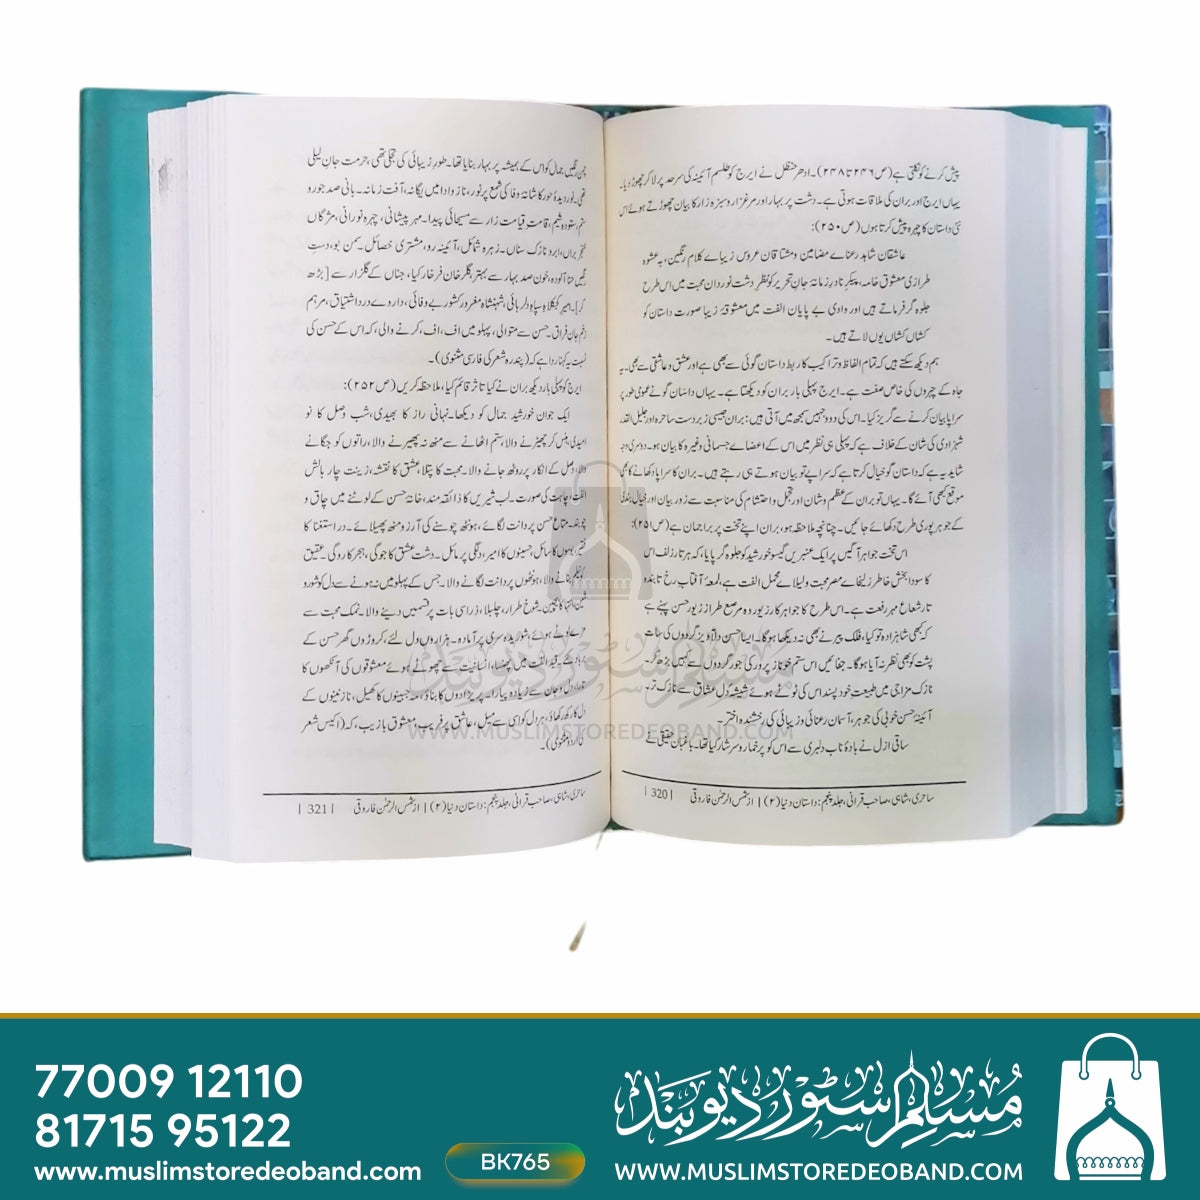 پیش کرنے کو نکلتی ہے (ص ۲۴۶ تا ۲۴۸)۔ ادھر حنظل نے ایرج کو طلسم آئینہ کی سرحد پر لا کر چھوڑ دیا۔
یہاں ایرج اور بران کی ملاقات ہوتی ہے۔ دشت پر بہار اور مرغزار و سبزہ زار کا بیان چھوڑتے ہوئے اس
نئی داستان کا چہرہ پیش کرتا ہوں (ص ۲۵۰):
عاشقان شاہد رعناے مضامین و مشتاقان عروس زیباے کلام رنگین، بہ عشوہ
طرازی معشوق خامہ، پیکر نادر زمانۂ جان تحریر کو نظر دشت نوردان محبت میں اس طرح
جلوہ گر فرماتے ہیں اور وادی بے پایان الفت میں معشوقۂ زیبا صورت داستان کو
کشاں کشاں یوں لاتے ہیں۔
ہم دیکھ سکتے ہیں کہ تمام الفاظ و تراکیب کا ربط داستان گوئی سے بھی ہے اور عشق و عاشقی سے بھی۔ یہ
جاہ کے چہروں کی خاص صفت ہے۔ ایرج پہلی بار بران کو دیکھتا ہے۔ یہاں داستان گو نے عمومی طور پر
سراپا بیان کرنے سے گریز کیا۔ اس کی دو وجہیں سمجھ میں آتی ہیں: بران جیسی زبردست ساحرہ اور جلیل القدر
شہزادی کی شان کے خلاف ہے کہ پہلی ہی نظر میں اس کے اعضاے جسمانی وغیرہ کا بیان ہو۔ دوسری وجہ
شاید یہ ہے کہ داستان گو خیال کرتا ہے کہ سراپے تو بیان ہوتے ہی رہتے ہیں۔ بران کا سراپا دکھانے کا بھی
موقع کبھی آئے گا۔ یہاں تو بران کے عظم و شان اور تجمل و احتشام کی مناسبت سے زور بیان اور خیال
کے جوہر پوری طرح دکھائے جائیں۔ چنانچہ ملاحظہ ہو، بران اپنے تخت پر براجمان ہے (ص ۲۵۱):
اس تخت جواہر آگیں پر ایک عنبریں گیسو خورشید کو جلوہ گر پایا، کہ ہر تار زلف اس
کا سودا بخش خاطر زلیخاے مصر محبت و لیلاے محمل الفت ہے، لمعۂ آفتاب رخ تابندہ
تار شعاع مہر رفعت ہے۔ اس طرح کا جواہر کار زیور وہ مرصع طراز زیور حسن پہنے ہے
کہ کبھی شاہزادہ تو کیا، فلک پیر نے بھی نہ دیکھا ہوگا۔ ایسا حسن دلآویز گردوں کی سات
پشت کو بھی نظر نہ آیا ہوگا۔ جفائیں اس ستم خو ناز پرور کی جور گردوں سے کہیں بڑھ کر۔
نازک مزاجی میں طبیعت خود پسند اس کی ٹوٹے ہوئے شیشۂ دل عشاق سے نازک تر۔
آئینۂ حسن خوبی کی جوہر، آسمان رعنائی و زیبائی کی رخشندہ اختر۔
ساقی ازل نے بادۂ ناب دلبری سے اس کو پر خمار و سرشار کیا تھا۔ باغبان حقیقی نے
ساحری، شاہی، صاحب قرانی، جلد پنجم: داستان دنیا (۲) | از شمس الرحمٰن فاروقی | 320 |
چمن رنگیں جمال کو اس کے ہمیشہ پر بہار بنایا تھا۔ طور زیبائی کی تجلی تھی، حرمت جان لیلی
تھی۔ نور دیدۂ حور، کاشانۂ وفا کی شمع پر نور، ناز و ادا میں یگانہ، آفت زمانہ۔ بانی صد جور و
ستم، ستودہ شیم، قامت قیامت زار سے مسیحائی پیدا۔ مہر پیشانی، چہرہ نورانی، مژگاں
خنجر براں، ابرو نازک سناں۔ زہرہ شمائل، آئینہ رو، مشتری خصائل۔ سمن بو، دست
رنگیں حنا آلودہ، خون صد بہار سے بہتر، گلرخان فرخار کیا، جناں کے گلزار سے [بڑھ
کر]۔ امیر کجکلاہ سپاہ دلربائی، شہنشاہ مغرور کشور بے وفائی، داروے درد اشتیاق، مرہم
زخم جان فراق۔ حسن سے متوالی، پہلو میں اف، اف، کرنے والی، کہ اس کے حسن کی
نسبت یہ کہنا روا ہے کہ (پندرہ شعر کی فارسی مثنوی)۔
ایرج کو پہلی بار دیکھ بران نے کیا تاثر قائم کیا، ملاحظہ کریں (ص ۲۵۲):
ایک جوان خورشید جمال کو دیکھا۔ نہانی راز کا بھیدی، شب وصل کا نو
امیدی، ہنس کر چھیڑنے والا، ستم اٹھانے سے منھ نہ پھیرنے والا، راتوں کو جگانے
والا، وصل کے انکار پر روٹھ جانے والا۔ محبت کا پتلا، عشق کا نقشہ، زینت چار بالش
الفت، چاہت کی صورت۔ لب شیریں کا ذائقہ مند، خانۂ حسن کے لوٹنے میں چاق و
چوبند۔ متاع حسن پر دانت لگائے، ہونٹھ چوسنے کی آرزو منھ پھیلائے۔ در استغنا کا
فقیر، بوسوں کا سائل، حسینوں کا امیر، دلگی پر مائل۔ دشت عشق کا جوگی، ہجر کا روگی۔ عقیق
کو نیلم بنانے والا، ہونٹھوں پر دانت لگانے والا۔ جس کے پہلو میں نہ ہونے سے دل کو شور و
شین، انتہا کا بے چین۔ شوخ طرار، چلبلا، ذرا سی بات پر قسمیں دینے والا۔ نمک محبت سے
مزے لوٹے ہوئے، شوریدہ سری پر آمادہ۔ ہزاروں دل لئے، کروڑوں گھر حسن کے
برباد کئے۔ قید الفت میں پھنسا، انسانیت سے چھوٹے ہوئے معشوقوں کی آنکھوں کا
تارا، دل و جان سے زیادہ پیارا۔ پریزادوں کا بناؤ، مہ جبینوں کا کھیل، نازنینوں کے
دل کا رکھ رکھاؤ، ہر دل کو اسی سے میل، عاشق پر فریب، معشوق بازیب، کہ (اکیس شعر
کی اردو مثنوی)۔
ساحری، شاہی، صاحب قرانی، جلد پنجم: داستان دنیا (۲) | از شمس الرحمٰن فاروقی | 321 |
مسلم سٹور دیوبند
WWW.MUSLIMSTOREDEOBAND.COM
77009 12110
81715 95122
www.muslimstoredeoband.com
BK765
مسلم سٹور دیوبند
WWW.MUSLIMSTOREDEOBAND.COM